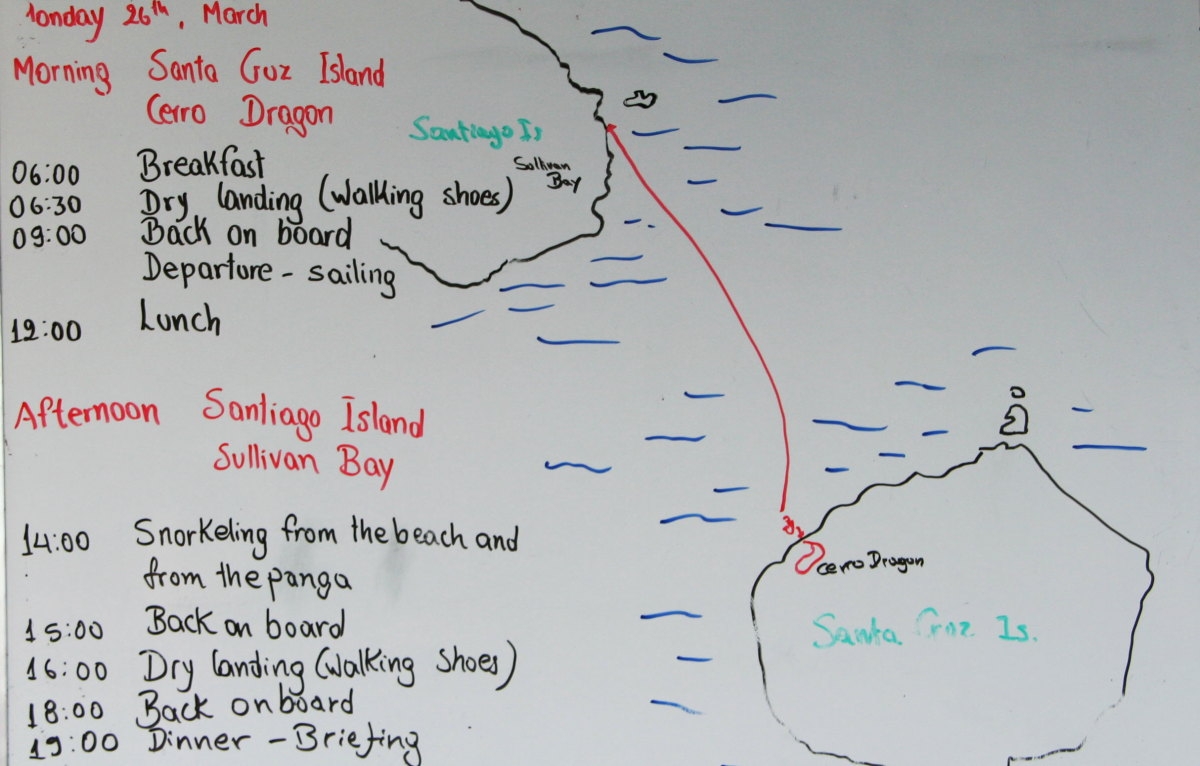 Monday 26th, March
Morning Santa Cruz Island
Cerro Dragon
06:00 Breakfast
06:30 Dry landing (walking shoes)
09:00 Back on board
Departure - sailing
12:00 Lunch
Afternoon Santiago Island
Sullivan Bay
14:00 Snorkeling from the beach and
from the panga
15:00 Back on board
16:00 Dry landing (walking shoes)
18:00 Back on board
19:00 Dinner - Briefing
Santiago Is
Sullivan
Bay
Cerro Dragon
Santa Cruz Is.